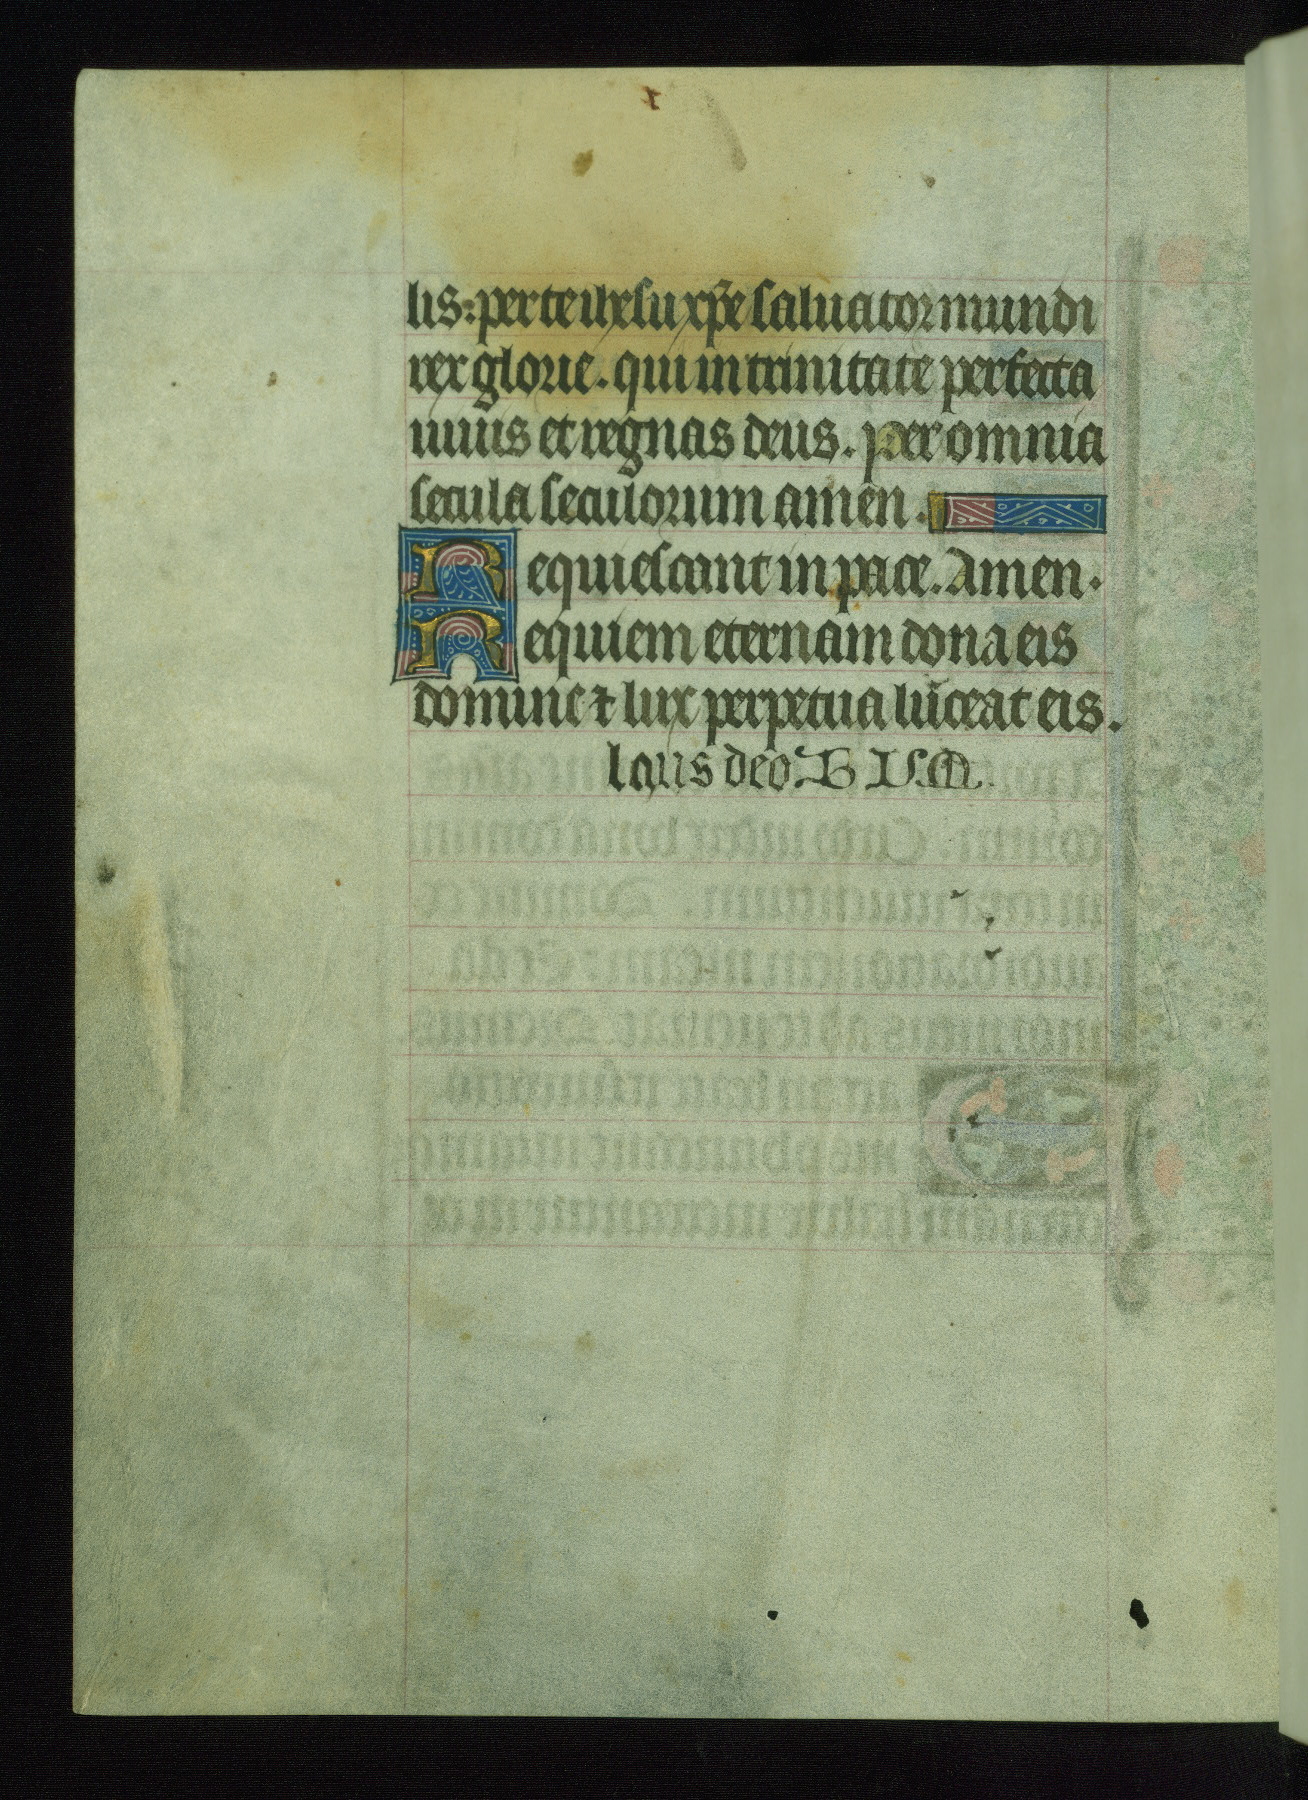 lis: per te ihesu xp̄e saluator mundi
rex glorie. qui in trinitate perfecta
uiuis et regnas deus. per omnia
secula seculorum amen.
Requiescant in pace. Amen.
Requiem eternam dona eis
domine ⁊ lux perpetua luceat eis.
laus deo. B V M.